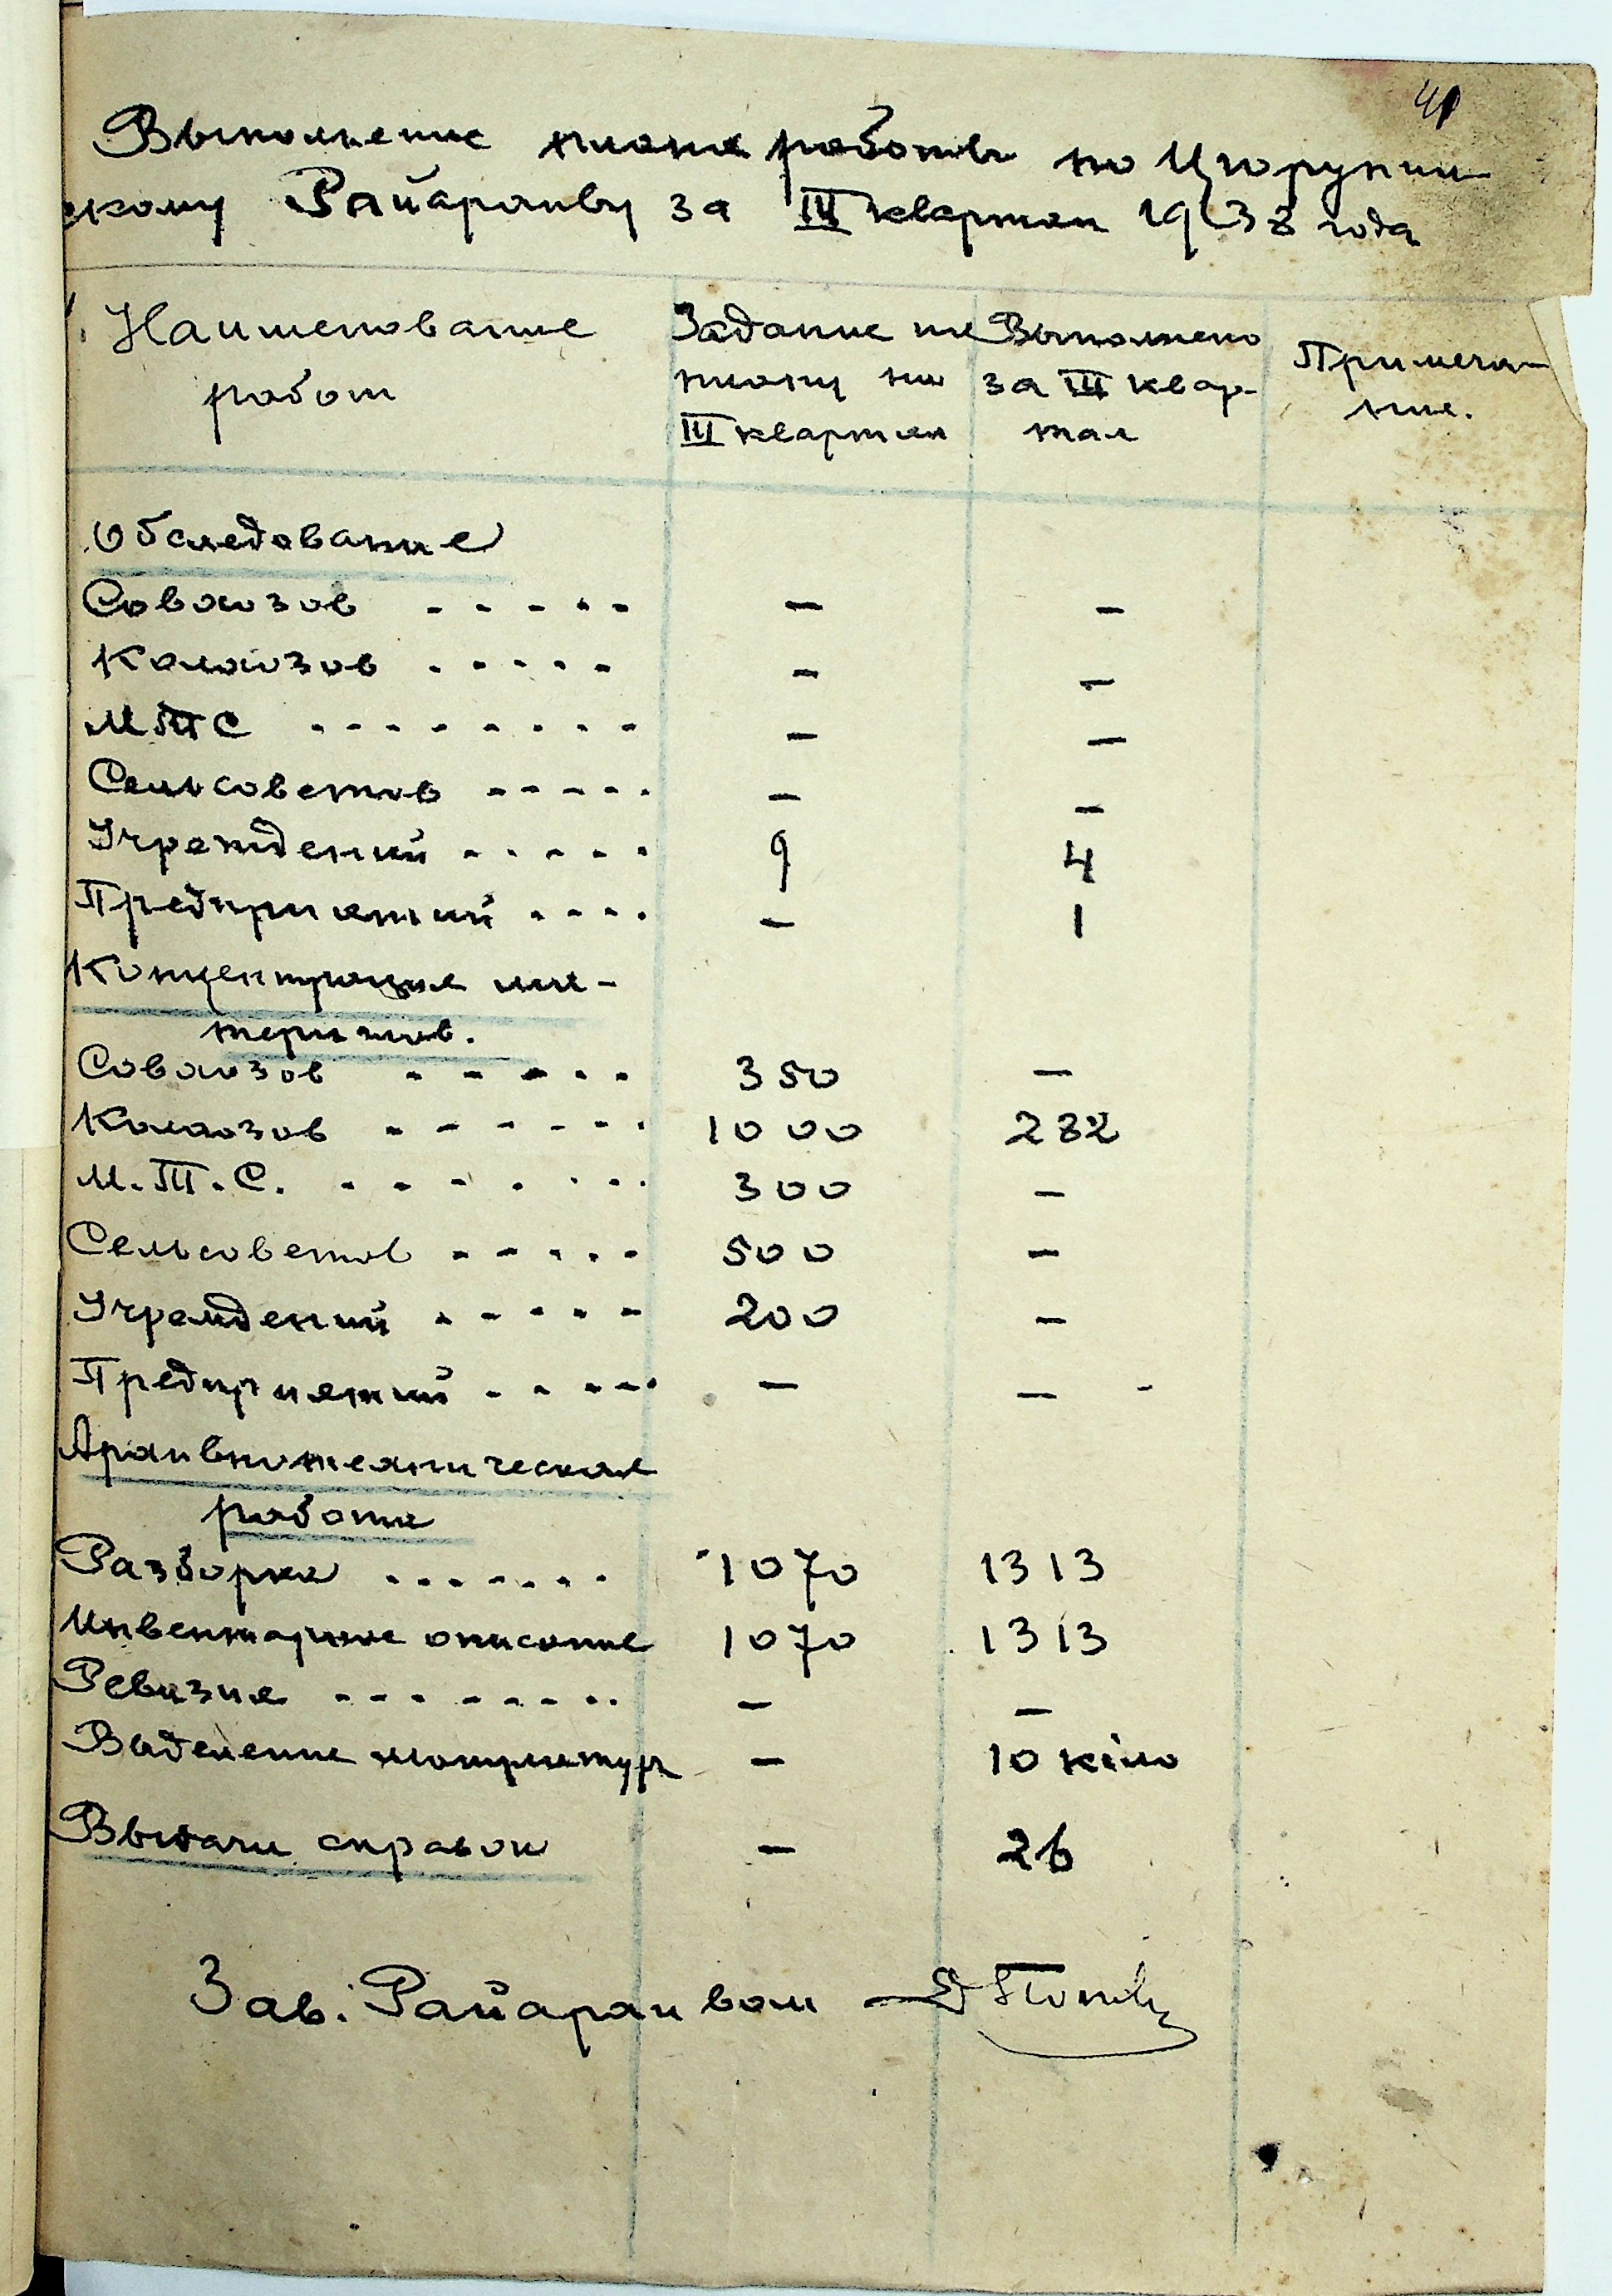 41
Выполнение плана работы по Цюрупин-
скому Райархиву за III квартал 1938 года
Наименование Задание по Выполнено Примеча-
работ плану на за III квар- ние.
III квартал тал
Обследование
Совхозов - - - - - — —
Колхозов - - - - - — —
МТС - - - - - - - - — —
Сельсоветов - - - - - — —
Учреждений - - - - - 9 4
Предприятий - - - - — 1
Концентрация ма-
териалов.
Совхозов - - - - - 350 —
Колхозов - - - - - - 1000 232
М.Т.С. - - - - - - - 300 —
Сельсоветов - - - - - 500 —
Учреждений - - - - - 200 —
Предприятий - - - - - — —
Архивнотехническая
работа
Разборка - - - - - - - 1070 1313
Инвентарное описание 1070 1313
Ревизия - - - - - - - - — —
Выделение макулатур — 10 кіло
Выдачи справок — 26
Зав. Райархивом